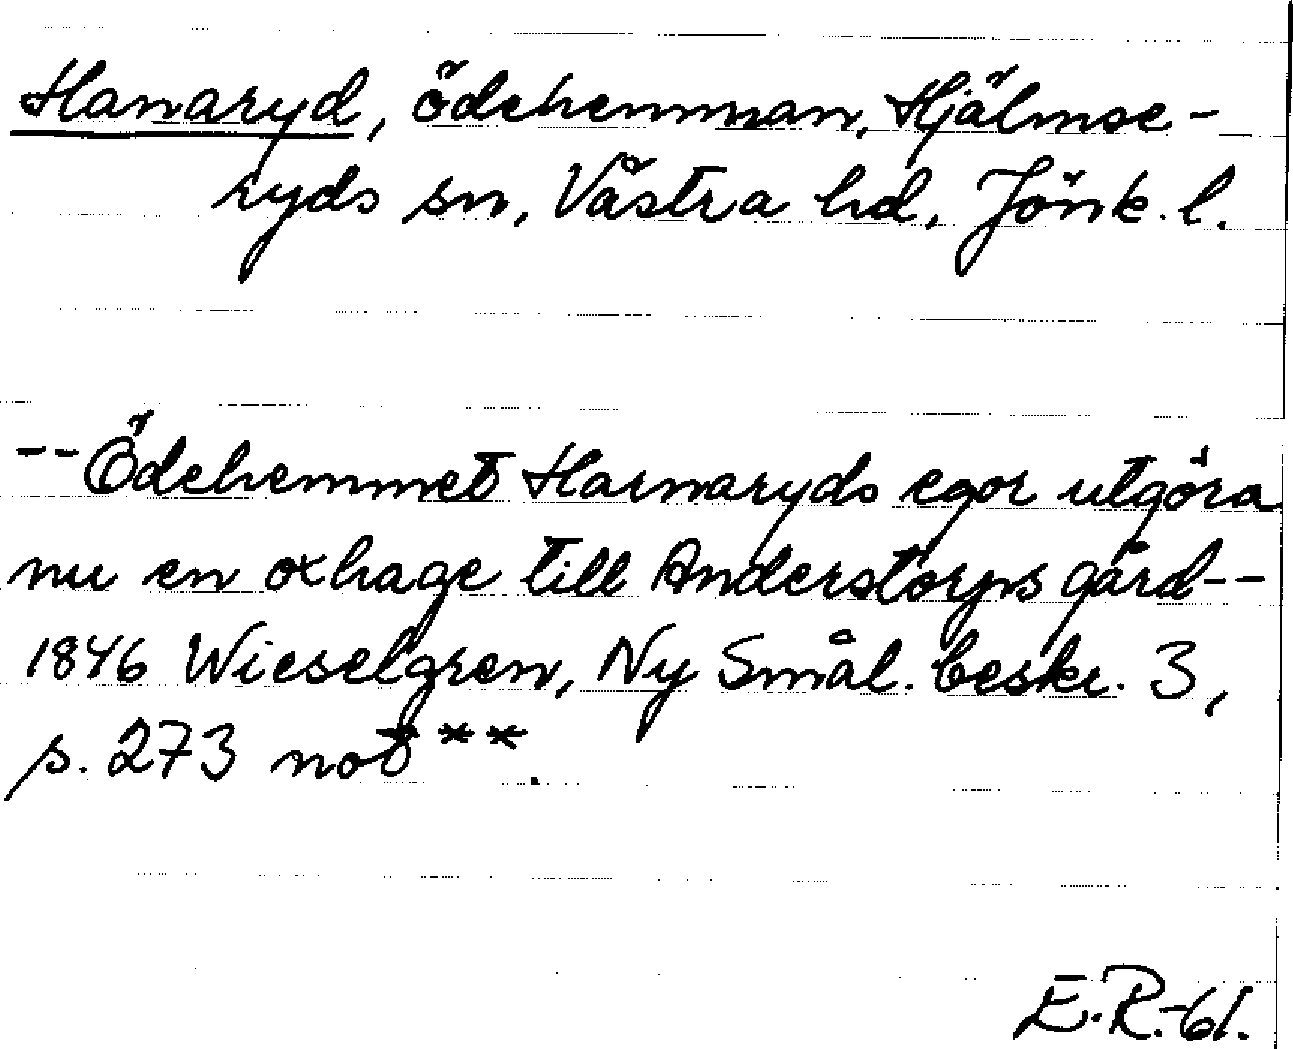 Hanaryd, ödehemman, Hjälmse-
ryds sn, Västra hd, Jönk. l.
--Ödehemmet Harnaryds egor utgöra
nu en oxhage till Anderstorps gård--
1846 Wieselgren, Ny Smål. beskr. 3,
s. 273 not ***.
E.R.-61.